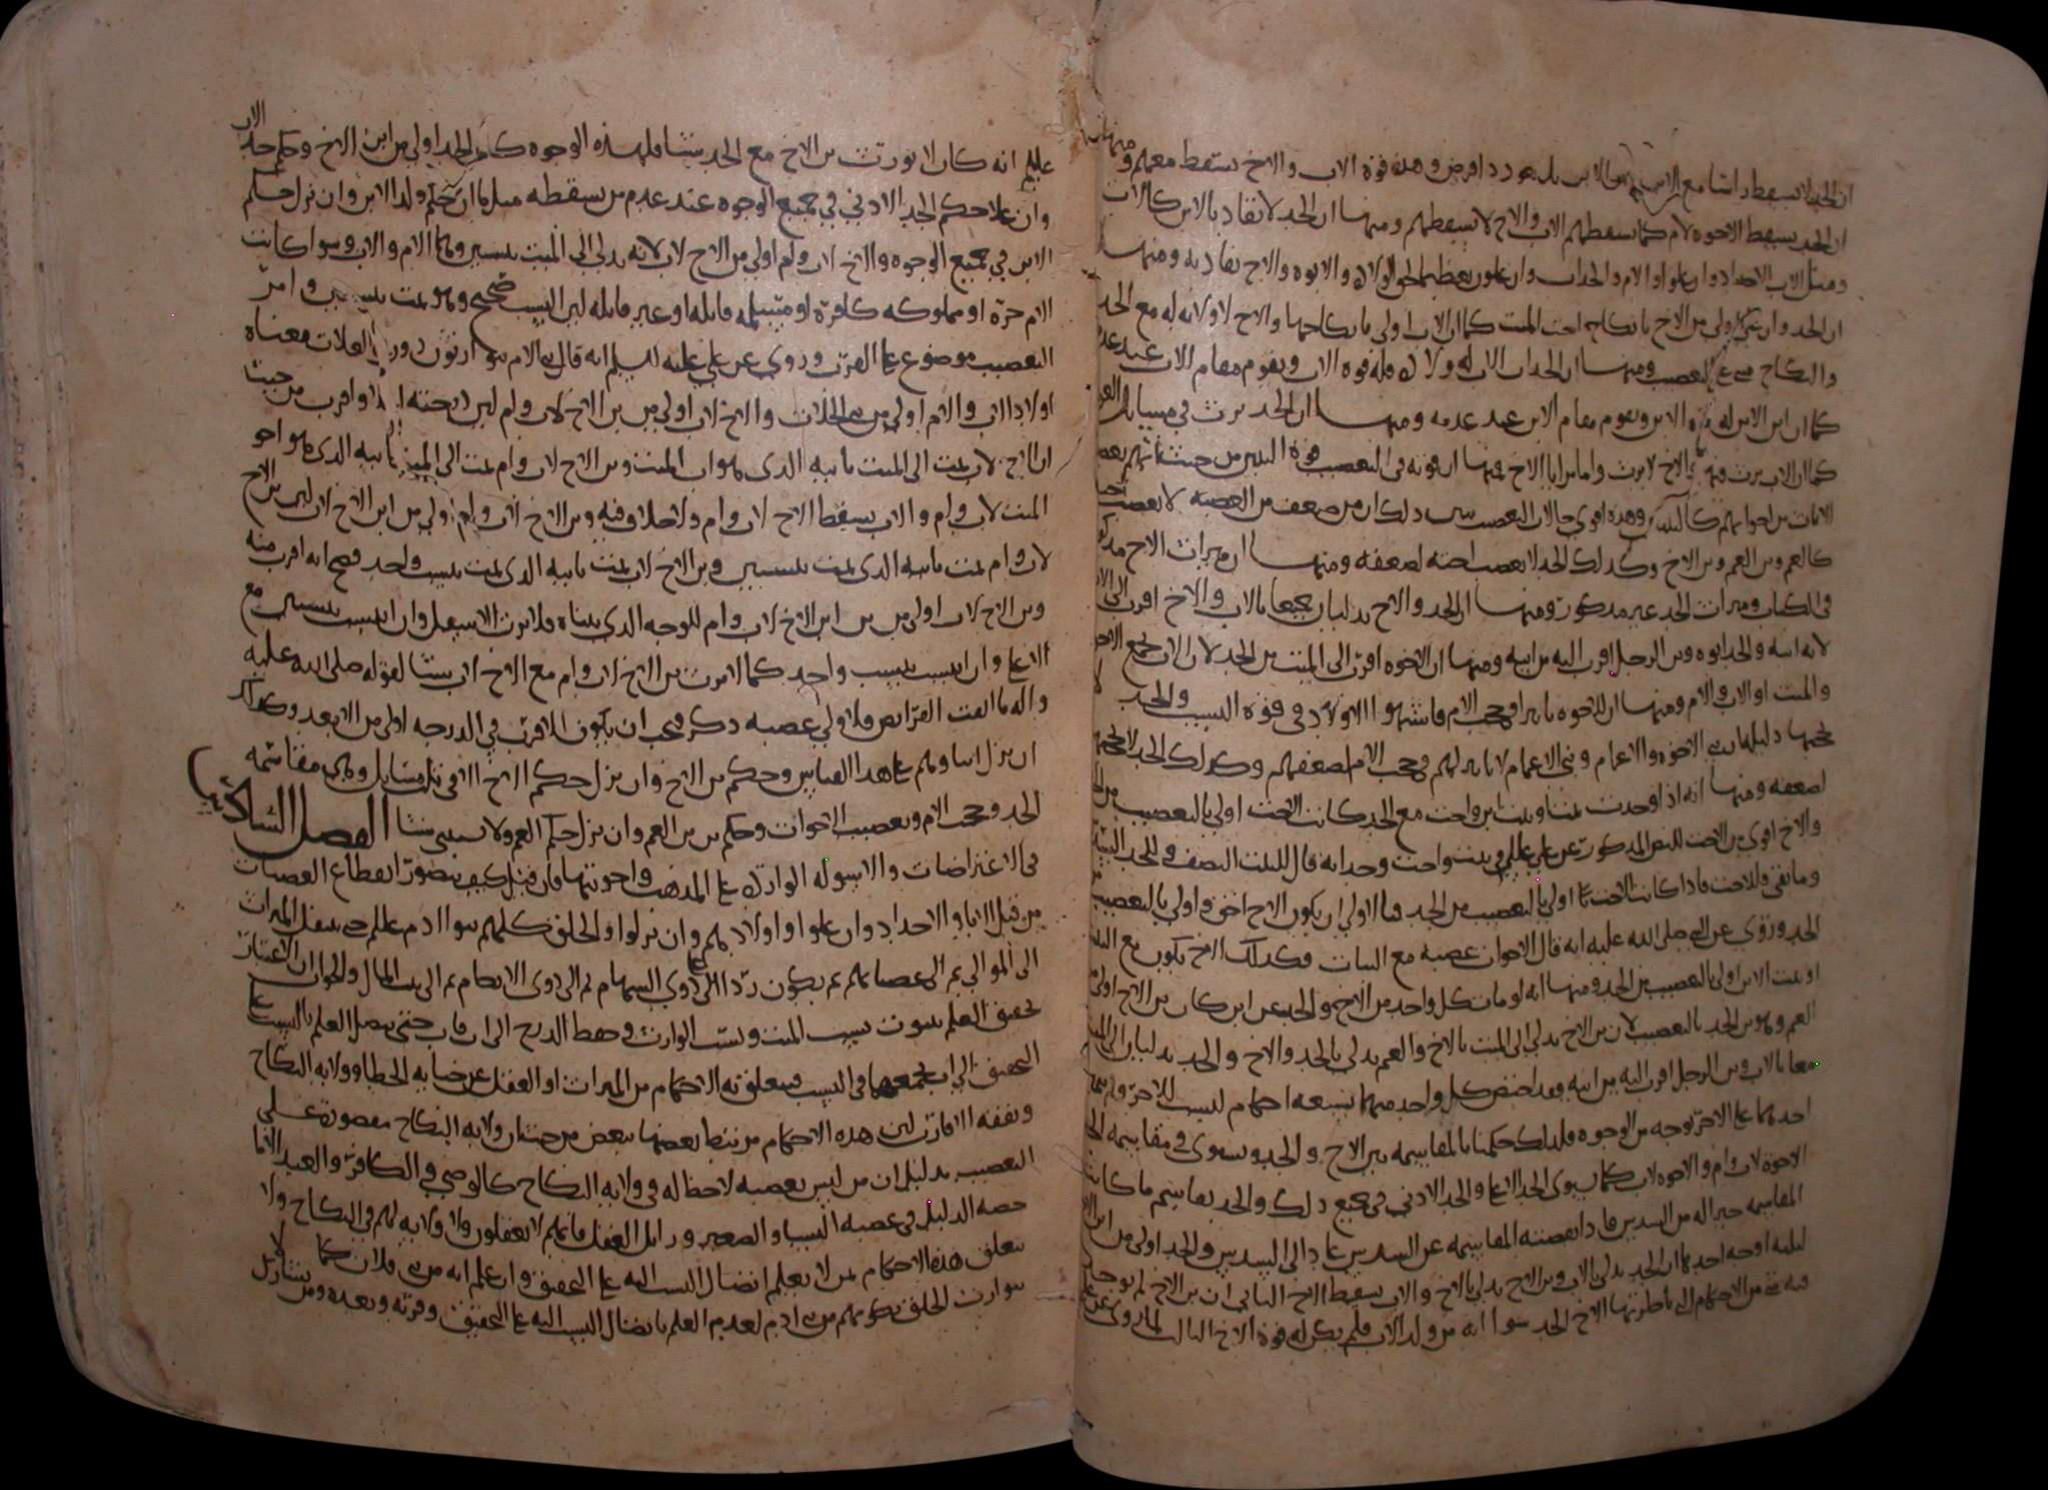 ان الجد لا يسقط راسا مع الابن بل يعود ذا فرض وهذه قوة الاب والاخ يسقط معهم ومنها
ان الجد يسقط الاخوة لام كما يسقطهم الاب والاخ لا يسقطهم ومنها ان الجد لا يقاد بالابن كالاب
ومثل الاب الاجداد وان علوا والام والجدات وان علون تعظيما لحق الولادة والابوة والاخ يقاد به ومنها
ان الجد وان علا اولى من الاخ بانكاح اخت الميت كما ان الاب اولى بانكاحها والاخ لا ولاية له مع الجد
والنكاح على التعصيب ومنها ان الجد اب الاب له ولادة فله قوة الاب ويقوم مقام الاب عند عدمه
كما ان ابن الابن له قوة الابن ويقوم مقام الابن عند عدمه ومنها ان الجد يرث في مسايل
كما ان الاب يرث فيها والاخ لا يرث واما مزايا الاخ فمنها ان قوته في التعصيب قوة البنين من حيث انهم يعصبون
الاناث من اخواتهم كالبنين وهذه اقوى حالات التعصيب بين ذلك ان من ضعف من العصبة لا يعصب اخته
كالعم وبن العم وبن الاخ وكذلك الجد لا يعصب اخته لضعفه ومنها ان ميراث الاخ مذكور
في الكتاب وميراث الجد غير مذكور ومنها ان الجد والاخ يدليان جميعا بالاب والاخ اقرب الى الاب
لانه ابنه والجد ابوه وبن الرجل اقرب اليه من ابيه ومنها ان الاخوة اقرب الى الميت من الجد لان الاب يجمع الاخوة
والميت او الاب والام ومنها ان للاخوة تاثيرا في حجب الام فاشبهوا الاولاد في قوة النسب والجد لا
يحجبها دليله بنو الاخوة والاعمام وبني الاعمام لا تاثير لهم في حجب الام لضعفهم وكذلك الجد لا يحجبها
لضعفه ومنها انه اذا وجدت بنت وبنت ابن واخت مع الجد كانت الاخت اولى بالتعصيب من الجد
والاخ اقوى من الاخت للنص المذكور عن علي عليلم في بنت واخت وجد انه قال للبنت النصف وللجد السدس
وما بقي فللاخت فاذا كانت الاخت اولى بالتعصيب من الجد فبالاولى ان يكون الاخ احق واولى بالتعصيب من
الجد وروي عن النبي صلى الله عليه انه قال الاخوات عصبة مع البنات فكذلك الاخ يكون مع البنت
او بنت الابن اولى بالتعصيب من الجد ومنها انه لو مات كل واحد من الاخ والجد عن ابن كان بن الاخ اولى من
العم وهو بن الجد بالتعصيب لان بن الاخ يدلي الى الميت بالاخ والعم يدلي بالجد والاخ والجد يدليان الى الميت
معا بالاب وبن الرجل اقرب اليه من ابيه فقد اختص كل واحد منهما بتسعة احكام ليست للاخر ولم يقم
احدهما على الاخر بوجه من الوجوه فلذلك حكمنا بالمقاسمة بين الاخ والجد ويستوي في مقاسمة الجد
الاخوة لاب وام والاخوة لاب كما يستوي الجد الاعلى والجد الادنى في جميع ذلك والجد يقاسم ما كانت
المقاسمة خيرا له من السدس فاذا نقصته المقاسمة عن السدس عاد الى السدس والجد اولى من ابن الاخ
لثلثة اوجه احدها ان الجد يدلي بالاب وبن الاخ يدلي بالاخ والاب يسقط الاخ الثاني ان بن الاخ لم يوجد
فيه شي من الاحكام التي ناظر بها الاخ الجد سوا انه من ولد الاب فلم يكن له قوة الاخ الثالث لما روي عن علي
عليلم انه كان لا يورث بن الاخ مع الجد شيئا فلهذه الوجوه كان الجد اولى من ابن الاخ وحكم جد الاب
وان علا حكم الجد الادنى في جميع الوجوه عند عدم من يسقطه مثل ما ان حكم ولد الابن وان نزل حكم
الابن في جميع الوجوه والاخ لاب وام اولى من الاخ لاب لانه يدلي الى الميت بنسبين وهما الام والاب وسوا كانت
الام حرة او مملوكه كافرة او مسلمه قابله او غير قابله لان النسب صحيح وهو يمت بنسبين وامر
التعصيب موضوع على القرب وروي عن علي عليه السلم انه قال بنو الام يتوارثون دون بني العلات معناه
اولاد الاب والام اولى من بني العلات والاخ لاب اولى من بن الاخ لاب وام لان درجته اعلا واقرب من حيث
ان الاخ لاب يمت الى الميت بابيه الذي هو ابو الميت وبن الاخ لاب وام يمت الى الميت بابيه الذي هو اخو
الميت لاب وام والاب يسقط الاخ لاب وام ولا خلاف فيه وبن الاخ لاب وام اولى من ابن الاخ لاب لان بن الاخ
لاب وام يمت بابيه الذي يمت بنسبين وبن الاخ لاب يمت بابيه الذي يمت بنسب واحد فصح انه اقرب منه
وبن الاخ لاب اولى من بن ابن الاخ لاب وام للوجه الذي بيناه فلا يرث الاسفل وان انتسب بنسبين مع
الاعلى وان انتسب بنسب واحد كما لا يرث بن الاخ لاب وام مع الاخ لاب شيئا لقوله صلى الله عليه
واله ما ابقت الفرائض فلاولى عصبة ذكر فيجب ان يكون الاقرب في الدرجة اولى من الابعد وكذلك
ان نزل ابناوهم على هذا القياس وحكم بن الاخ وان نزل حكم الاخ الا في ثلث مسايل وهي مقاسمة
الجد وحجب الام وتعصيب الاخوات وحكم بن بن العم وان نزل حكم العم ولا يستثنى شيئا الفصل السادس
في الاعتراضات والاسولة الواردة على المذهب واجوبتها فان قيل كيف يتصور انقطاع العصبات
من قبل الابا والاجداد وان علوا واولادهم وان نزلوا والخلق كلهم بنو ادم عليلم حتى ينتقل الميراث
الى الموالي ثم الى عصباتهم ثم يكون ردا الى ذوي السهام ثم الى ذوي الارحام ثم الى بيت المال والجواب ان الاعتبار
تحقيق العلم بثبوت نسب الميت ونسب الوارث وحفظ الدرج الى اب جتى يصل العلم بالنسب على
التحقيق الى اب يجمعهما في النسب فيتعلق به الاحكام من الميراث او العقل عن جناية الخطا وولاية النكاح
ونفقة الاقارب لان هذه الاحكام مرتبط بعضها ببعض من حيث ان ولاية النكاح مقصورة على
التعصيب بدليل ان من ليس بعصبة لا حظ له في ولاية النكاح كالوصي في الكافرة والعبد الا ما
خصه الدليل في عصبة النسا والصغير وزايل العقل فانهم لا يعقلون ولا ولاية لهم في النكاح ولا
يتعلق هذه الاحكام بمن لا يعلم اتصال النسب اليه على التحقيق وان علم انه من بني فلان كما لا
يتوارث الخلق بكونهم من بني ادم لعدم العلم باتصال النسب اليه على التحقيق وقربه وبعده ومن يشارك